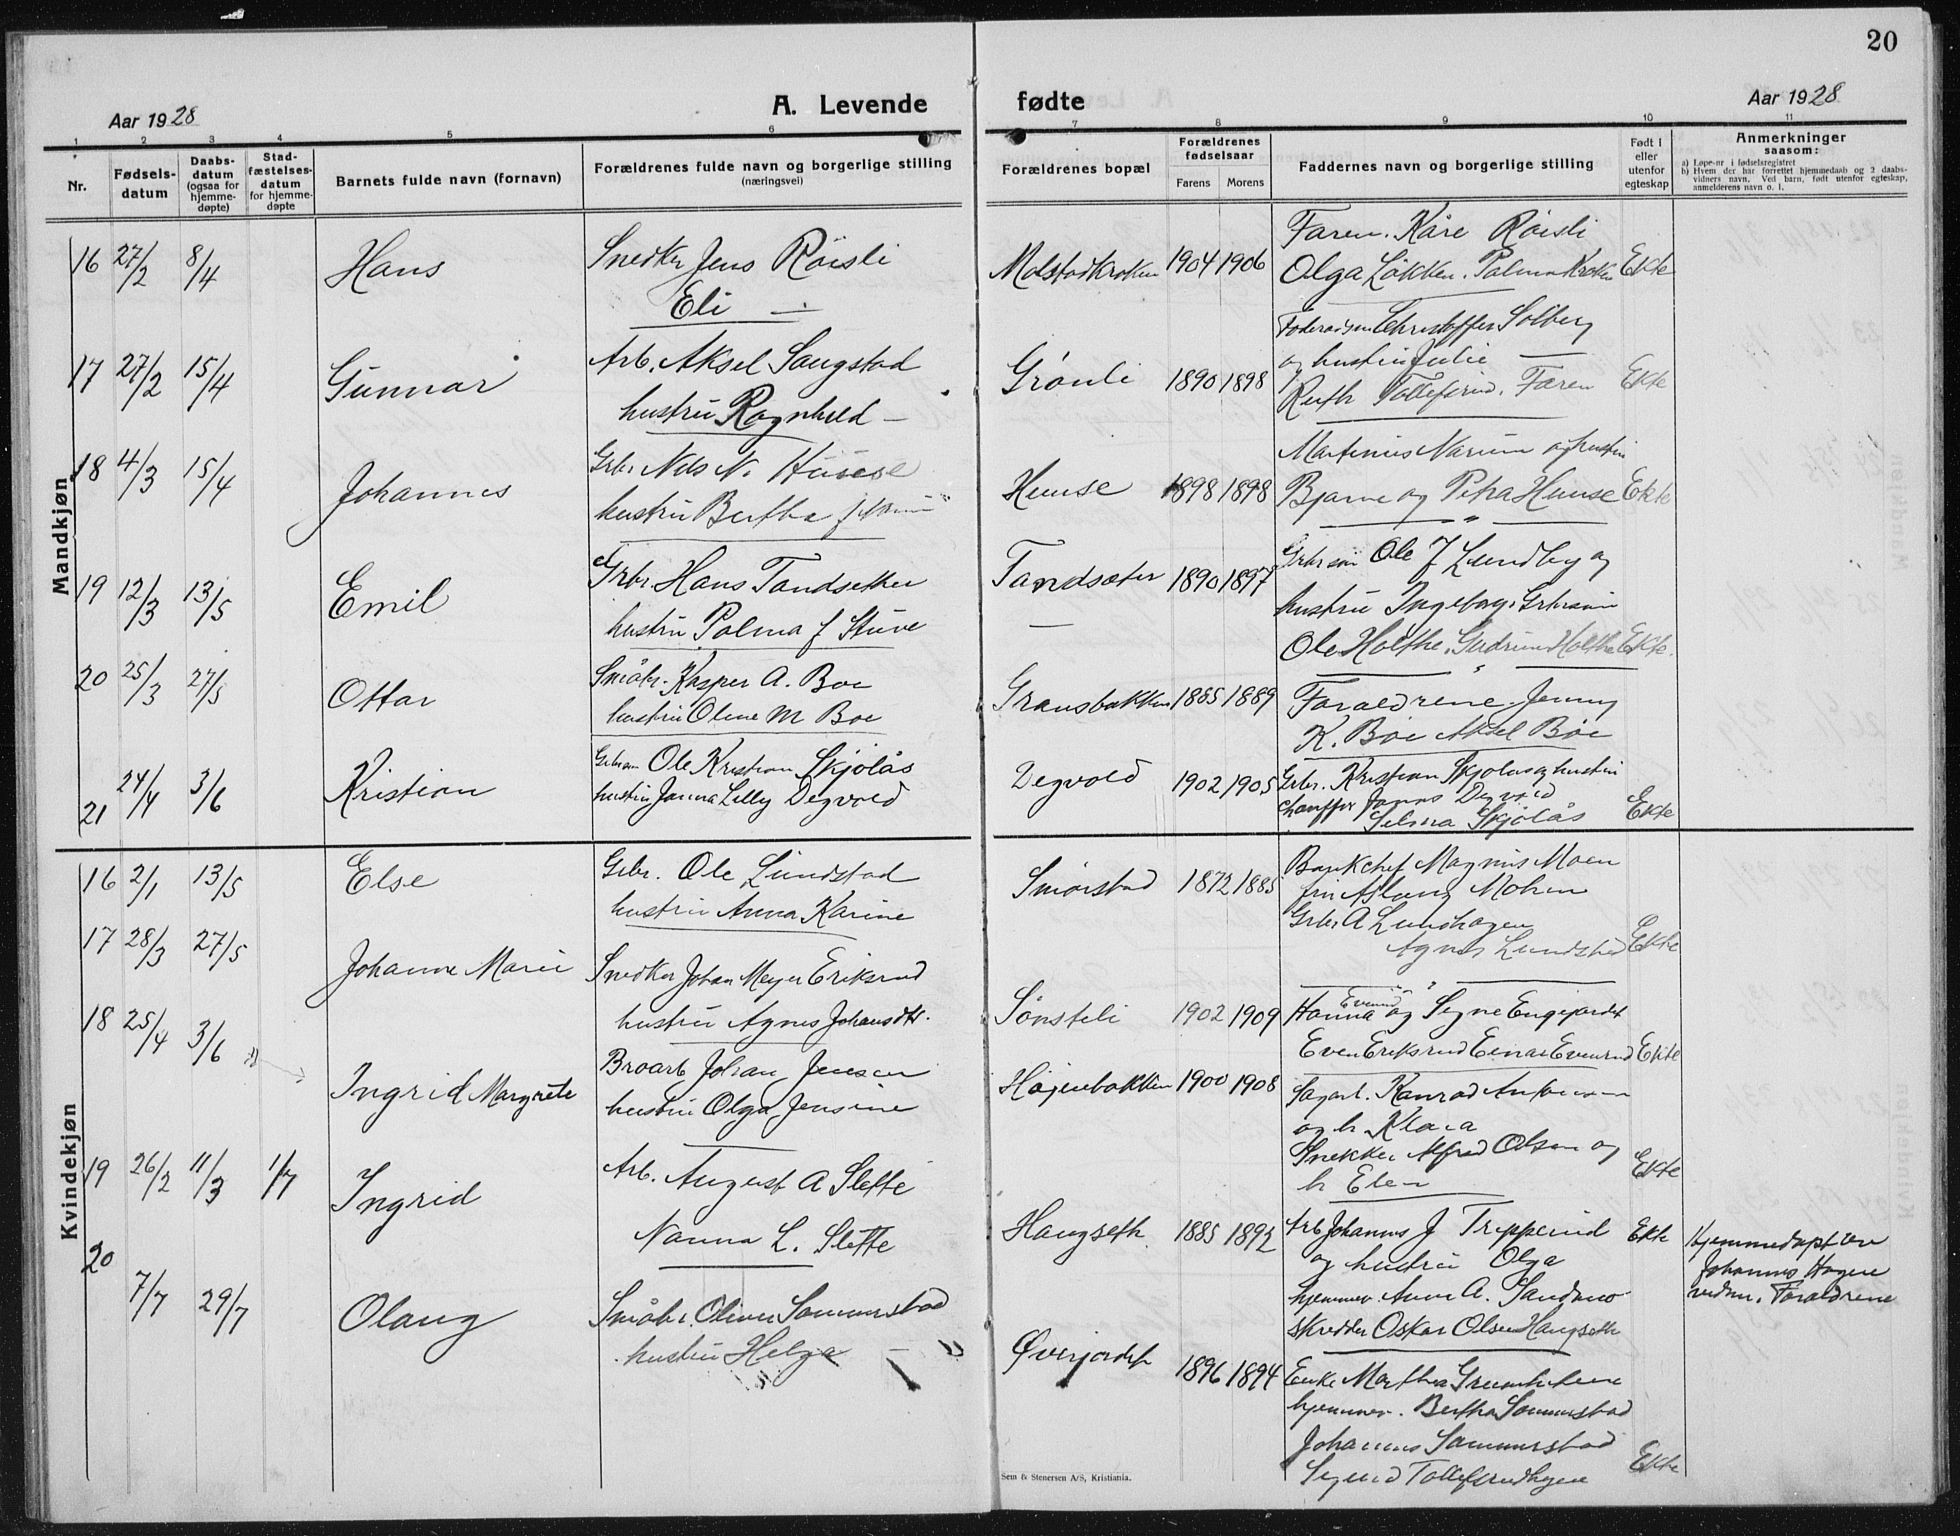 20
Aar 1928 A. Levende fødte Aar 1928
1 2 3 4 5 6 7 8 9 10 11
Nr. Fødselsdatum Daabsdatum (ogsaa for hjemmedøpte) Stadfæstelsesdatum for hjemmedøpte Barnets fulde navn (fornavn) Forældrenes fulde navn og borgerlige stilling (næringsvei) Forældrenes bopæl Forældrenes fødselsaar Farens Morens Faddernes navn og borgerlige stilling Født i eller utenfor egteskap Anmerkninger saasom:
a) Løpe-nr i fødselsregistret
b) Hvem der har forrettet hjemmedaab og 2 daabsvidners navn. Ved barn, født utenfor egteskap, anmelderens navn o. l.
Mandkjøn
16 27/2 8/4 Hans Snedker Jens Röisli Molstadkroken 1904 1906 Faren. Kåre Röisli
Eli — Olga Løkken. Palma Kroken Ekte
17 27/2 15/4 Gunnar Arb. Aksel Saugstad Grønli 1890 1898 Christoffer Solberg
hustru Ragnhild — og hustru Julie —
Ruth Tollefsrud. Faren Ekte
18 4/3 15/4 Johannes Grbr Nils N. Hunse Hunse 1898 1898 Martinius Narum og hustru
hustru Bertha f Narum Bjarne og Petra Hunse Ekte
19 12/3 13/5 Emil Grbr Hans Tandsether Tandsæter 1890 1897 Grbrsøn Ole J Lundby og
hustru Palma f Stuve hustru Ingeborg. Grbrsøn
Ole Holthe. Gudrun Holthe Ekte.
20 25/3 27/5 Ottar Småbr. Kasper A. Boe Gransbakken 1885 1889 Forældrene. Jenny
hustru Oline M Boe K. Böe Aksel Böe
21 24/4 3/6 Kristian Grbrsøn Ole Kristian Skjølås Degvold 1902 1905 Grbr. Kristian Skjølås og hustru
hustru Janna Lilly Degvold chauffør Degvold
Selma Skjølås Ekte
Kvindekjøn
16 2/1 13/5 Else Grbr. Ole Lundstad Smørstad 1872 1885 Bankchef Magnus Moen
hustru Anna Karine fru Aslaug Mohn
Grbr A Lundhagen
Agnes Lundstad Ekte
17 28/3 27/5 Johanne Marie Snedker Johan Meyer Eriksrud Sønsteli 1902 1909 Hanna Evenrud og Signe Engejordet
hustru Agnes Johansdtr. Even Eriksrud Einar Evenrud Ekte
18 25/4 3/6 Ingrid Margrete Broarb Johan Jensen Høgenbakken 1900 1908 Sagarb. Konrad Antonsen
hustru Olga Jensine og h Klara
Snekker Alfred Olsen og
h Elen Ekte
19 26/2 11/3 1/7 Ingrid Arb. August A Slette Haugseth 1885 1892 Arb Johannes J Tripperud Ekte Hjemmedøpt av
Nanna L. Slette og hustru Olga Johannes Hagen
hjemmev. Anna A. Sandmo vidner. Forældrene
skredder Oskar Olsen Haugseth
20 7/7 29/7 Olaug Småbr. Oliver Sommerstad Øverjordet 1896 1894 Enke Marthea
hustru Helga — hjemmev. Bertha Sommerstad
Johannes Sommerstad
Sigurd Tollefsrudhagen Ekte
Sem & Stenersen A/S, Kristiania.